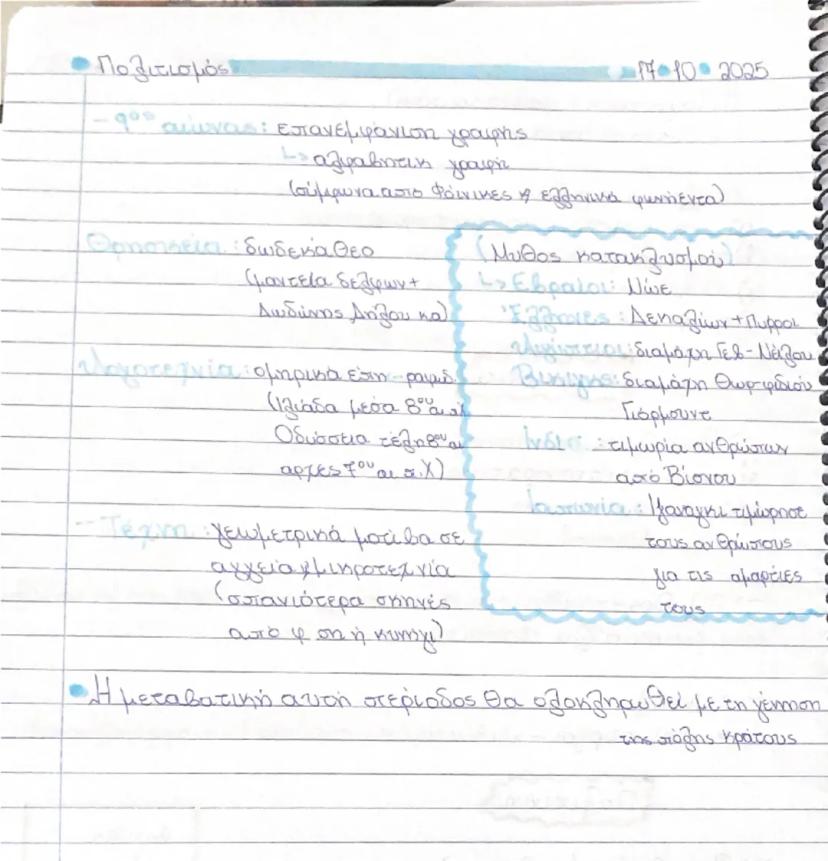 Πολιτισμός 17•10•2025
- 9ος αιώνας: επανεμφάνιση γραφής
↳ αλφαβητική γραφή
(σύμφωνα από Φοίνικες & ελληνικά φωνήεντα)
Θρησκεία: δωδεκάθεο
(μαντεία δελφων +
Δωδώνης Δήλου κα)
Λογοτεχνία: ομηρικά έπη - ραψωδ
(Ιλιάδα μέσα 8ου αι π)
Οδύσσεια τέλη 8ου αι
αρχές 7ου αι π.Χ)
- Τέχνη: γεωμετρικά μοτίβα σε
αγγεία & μικροτεχνία
(σπανιότερα σκηνές
από φ ση ή κυνήγι)
(Μυθος κατακλυσμού)
↳ Εβραίοι: Νώε
Έλληνες: Δεκαλίων + Πυρρα
Αιγύπτιοι: διαμάχη Γεβ - Νείλου
Βικινγκς: διαμάχη Θωρ-φιδιού
Γιόρμουντ
Ινδία: τιμωρία ανθρώπων
από Βισνου
Ιαπωνία: Ιζαναγκι τιμώρησε
τους ανθρώπους
για τις αμαρτίες
τους
• Η μεταβατική αυτή περίοδος θα ολοκληρωθεί με τη γέννηση
της πόλης κράτους